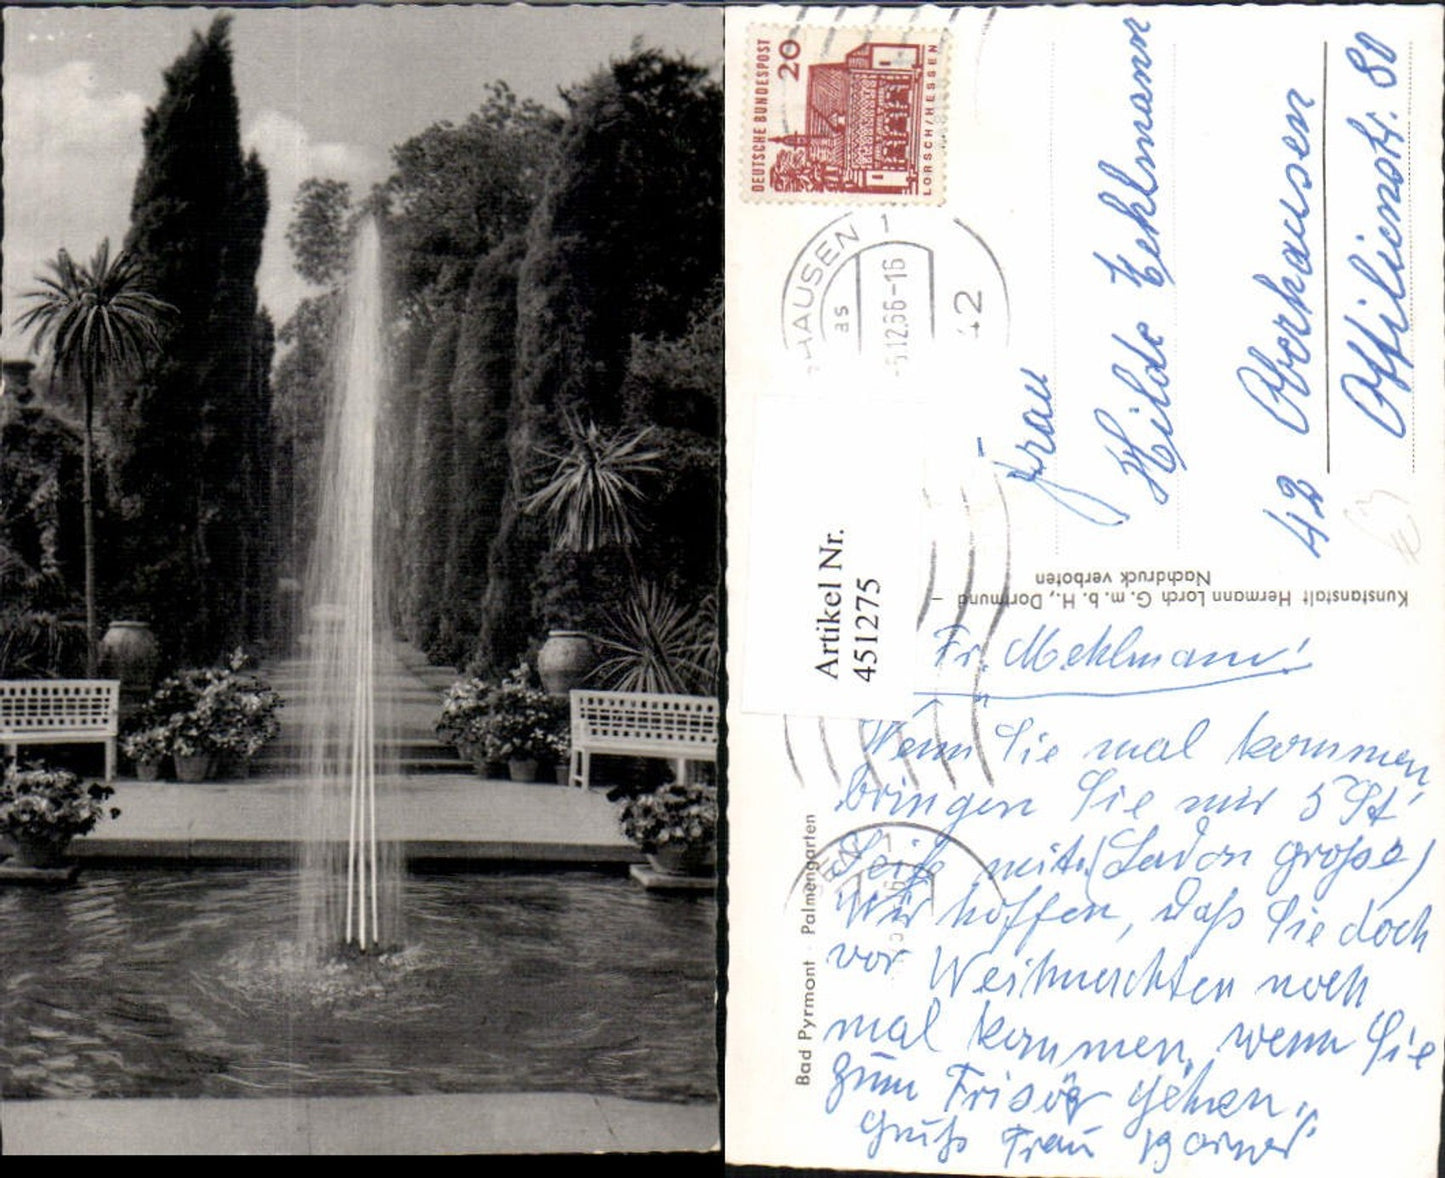 DEUTSCHE BUNDESPOST
20
LORSCH/HESSEN
HAUSEN 1
as
12.66-16
42
Frau
Hilde Mehlmann
42 Oberhausen
Ottilienstr. 80
Kunstanstalt Hermann Lorch G. m. b. H., Dortmund –
Nachdruck verboten
Artikel Nr.
451275
Bad Pyrmont · Palmengarten
Fr. Mehlmann!
Wenn Sie mal kommen
bringen Sie mir 5 St
Seife mit. (Lavor große)
Wir hoffen, daß Sie doch
vor Weihnachten noch
mal kommen, wenn Sie
zum Frisör gehen.
Gruß Frau